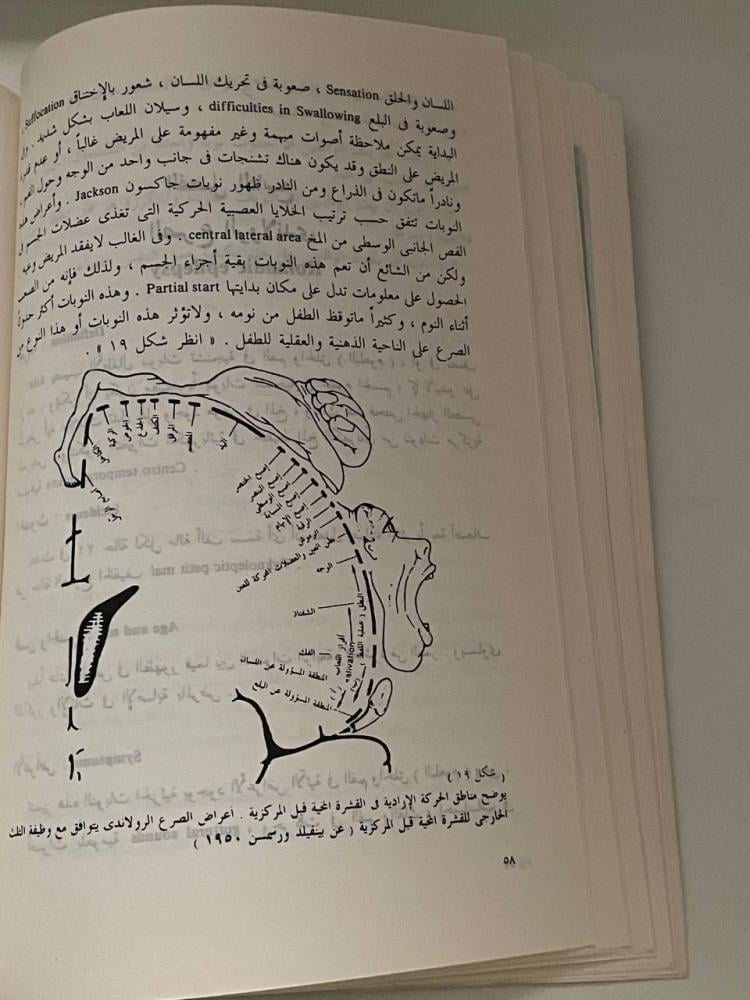 اللسان والحلق Sensation ، صعوبة فى تحريك اللسان ، شعور بالإختناق Suffocation
وصعوبة فى البلع difficulties in Swallowing ، وسيلان اللعاب بشكل شديد .
البداية يمكن ملاحظة أصوات مبهمة وغير مفهومة على المريض غالباً ، أو عدم
المريض على النطق وقد يكون هناك تشنجات فى جانب واحد من الوجه وحول الفم
ونادراً ماتكون فى الذراع ومن النادر ظهور نوبات جاكسون Jackson . وأعراض
النوبات تتفق حسب ترتيب الخلايا العصبية الحركية التى تغذى عضلات الجسم
الفص الجانبى الوسطى من المخ central lateral area . وفى الغالب لايفقد المريض وعيه
ولكن من الشائع أن تعم هذه النوبات بقية أجزاء الجسم ، ولذلك فإنه من الصعب
الحصول على معلومات تدل على مكان بدايتها Partial start . وهذه النوبات أكثر
أثناء النوم ، وكثيراً ماتوقظ الطفل من نومه ، ولاتؤثر هذه النوبات أو هذا النوع من
الصرع على الناحية الذهنية والعقلية للطفل . « انظر شكل ١٩ » .
الركبة
الحوض
الجذع
الكتف
المرفق
المعصم
اليد
اصبع الخنصر
اصبع البنصر
اصبع الوسطى
اصبع السبابة
اصبع الابهام
الرقبة
مقل العين والعضلات المحركة للعين
الوجه
الشفتان
الفك
النطق ( عملية اللفظ )
افراز اللعاب
salivation
المنطقة المسؤولة عن اللسان
المنطقة المسؤولة عن البلع
( شكل ١٩ )
يوضح مناطق الحركة الإرادية فى القشرة المخية قبل المركزية . أعراض الصرع الرولاندى يتوافق مع وظيفة الثلث
الخارجى للقشرة المخية قبل المركزية ( عن بينفيلد ورسمسن ١٩٥٠ )
٥٨